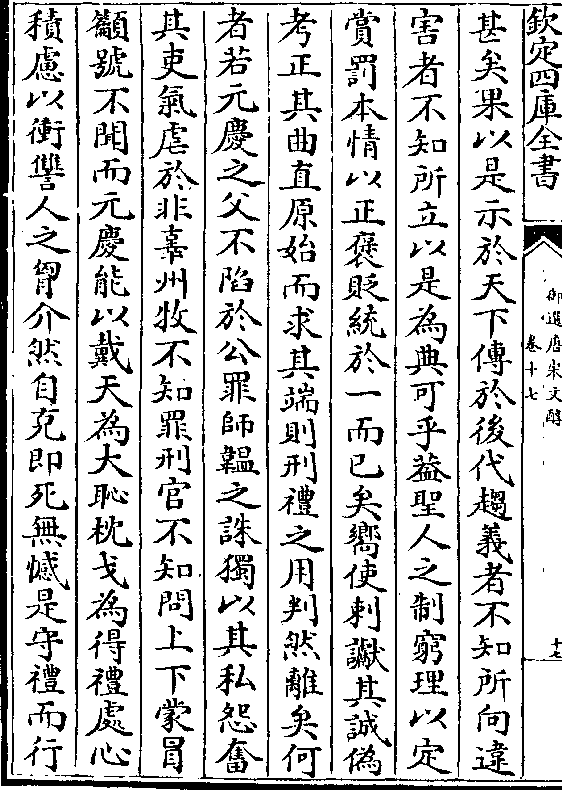 欽定四庫全書
御選唐宋文醇
卷十七
十七
甚矣果以是示於天下傳於後代趨義者不知所向違
害者不知所立以是為典可乎葢聖人之制窮理以定
賞罰本情以正褒貶統於一而已矣嚮使刺讞其誠偽
考正其曲直原始而求其端則刑禮之用判然離矣何
者若元慶之父不陷於公罪師韞之誅獨以其私怨奮
其吏氣虐於非辜州牧不知罪刑官不知問上下蒙冒
籲號不聞而元慶能以戴天為大恥枕戈為得禮處心
積慮以衝讐人之胷介然自克即死無憾是守禮而行